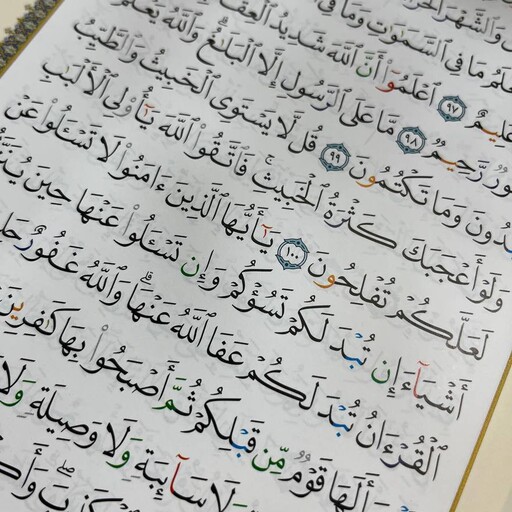 وَٱلشَّهْرَ ٱلْحَرَ
يَعْلَمُ مَا فِى ٱلسَّمَٰوَٰتِ وَمَا فِى
عَلِيمٌ ٩٧ ٱعْلَمُوٓا۟ أَنَّ ٱللَّهَ شَدِيدُ ٱلْعِقَا
غَفُورٌ رَّحِيمٌ ٩٨ مَّا عَلَى ٱلرَّسُولِ إِلَّا ٱلْبَلَٰغُ ۗ وَٱللَّهُ يَعْلَمُ
تُبْدُونَ وَمَا تَكْتُمُونَ ٩٩ قُل لَّا يَسْتَوِى ٱلْخَبِيثُ وَٱلطَّيِّبُ
وَلَوْ أَعْجَبَكَ كَثْرَةُ ٱلْخَبِيثِ ۚ فَٱتَّقُوا۟ ٱللَّهَ يَٰٓأُو۟لِى ٱلْأَلْبَٰبِ
لَعَلَّكُمْ تُفْلِحُونَ ١٠٠ يَٰٓأَيُّهَا ٱلَّذِينَ ءَامَنُوا۟ لَا تَسْـَٔلُوا۟ عَنْ
أَشْيَآءَ إِن تُبْدَ لَكُمْ تَسُؤْكُمْ وَإِن تَسْـَٔلُوا۟ عَنْهَا حِينَ يُنَزَّلُ
ٱلْقُرْءَانُ تُبْدَ لَكُمْ عَفَا ٱللَّهُ عَنْهَا ۗ وَٱللَّهُ غَفُورٌ حَلِ
سَأَلَهَا قَوْمٌ مِّن قَبْلِكُمْ ثُمَّ أَصْبَحُوا۟ بِهَا كَٰفِرِينَ
وَلَا سَآئِبَةٍ وَلَا وَصِيلَةٍ وَلَا
ٱلْكَذِبَ ۖ وَأَكْ